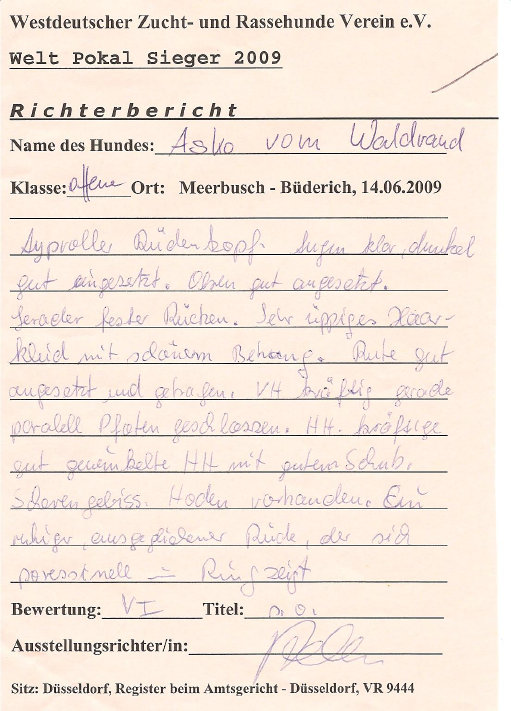 Westdeutscher Zucht- und Rassehunde Verein e.V.
Welt Pokal Sieger 2009
Richterbericht
Name des Hundes: Asko vom Waldrand
Klasse: offene Ort: Meerbusch - Büderich, 14.06.2009
Typvoller Rüdenkopf. Augen klar, dunkel
gut eingesetzt. Ohren gut angesetzt.
Gerader fester Rücken. Sehr üppiges Haar-
kleid mit schönem Behang. Rute gut
angesetzt und getragen. VH kräftig gerade
parallel Pfoten geschlossen. HH. kräftige
gut gewinkelte HH mit gutem Schub.
Scherengebiss. Hoden vorhanden. Ein
ruhiger, ausgeglichener Rüde, der sich
Ring zeigt
Bewertung: VI Titel:
Ausstellungsrichter/in:
Sitz: Düsseldorf, Register beim Amtsgericht - Düsseldorf, VR 9444